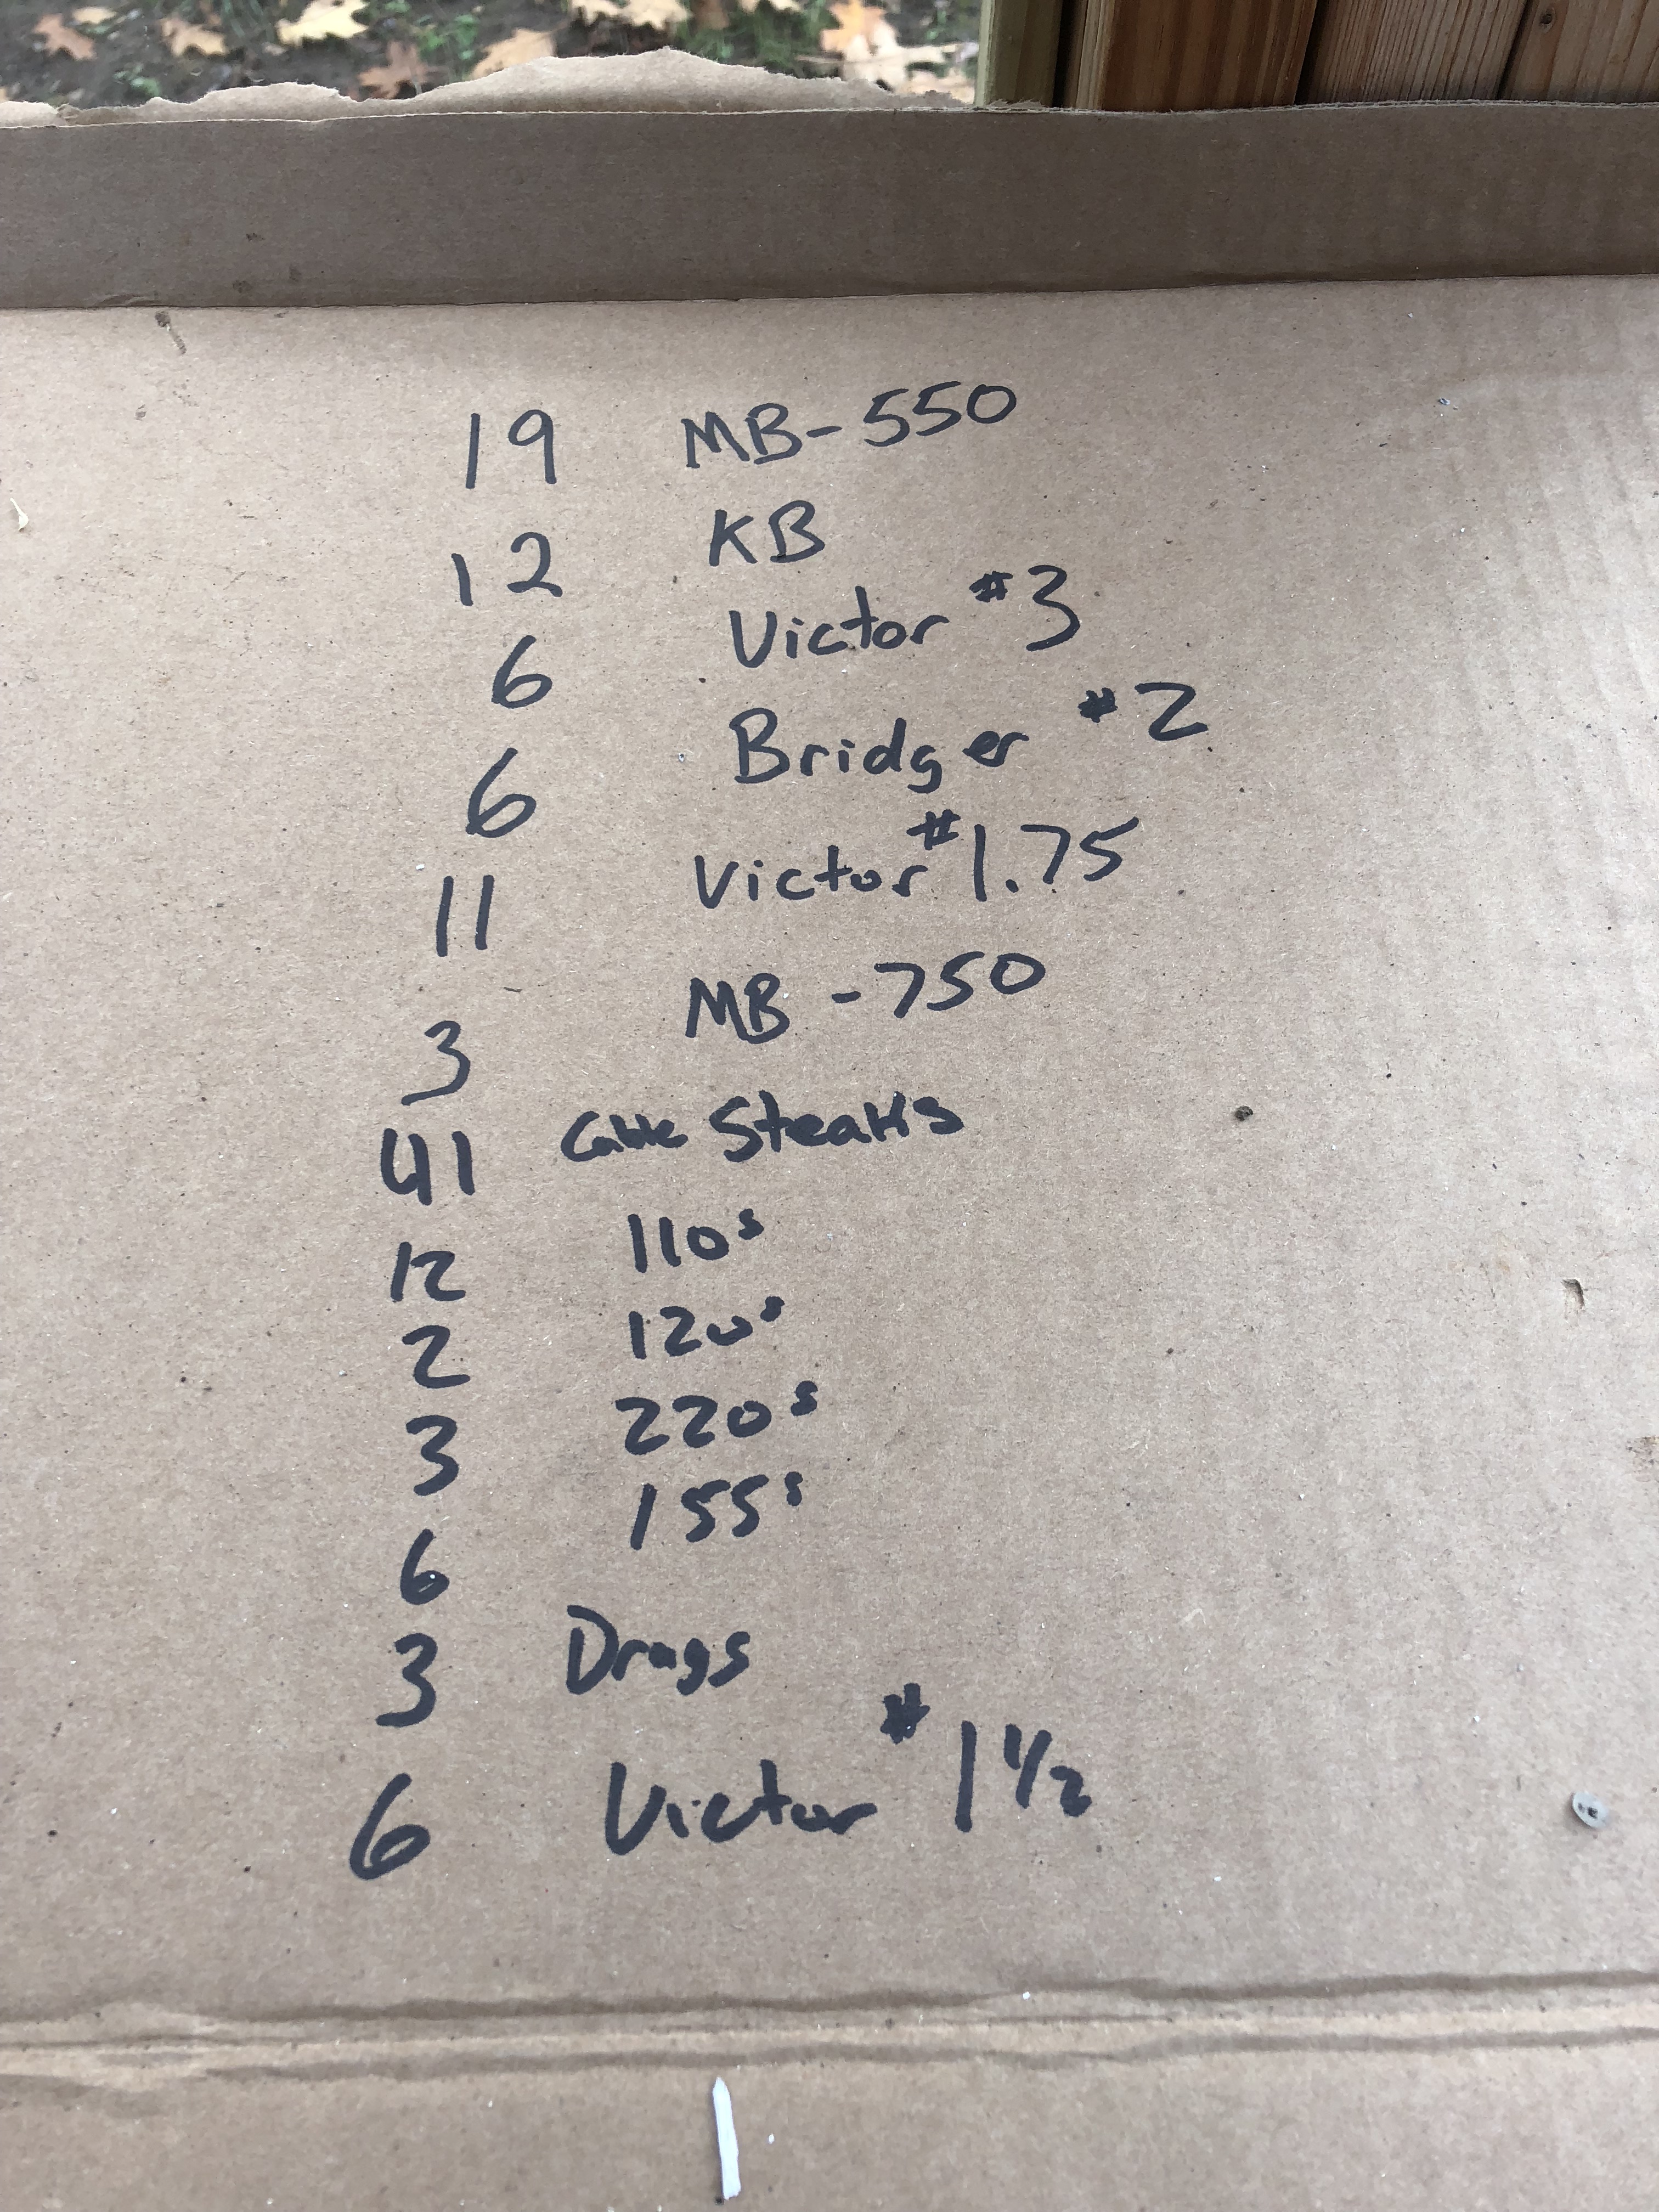 19 MB-550
12 KB
6 Victor #3
6 Bridger #2
11 Victor #1.75
3 MB-750
41 Cable Steaks
12 110s
2 120s
3 220s
6 155s
3 Drags
6 Victor #1 1/2